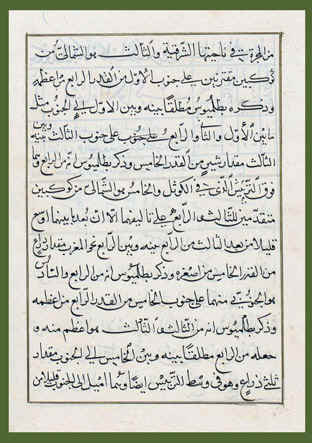 من المجرة في ناحيتها الشرقية والثالث هو الشمالي من
كوكبين مقترنين على جنوب الاول من القدر الرابع من اعظمه
وذكره بطلميوس مطلقا بينه وبين الاول الى الجنوب مثل
ما بين الاول والثاني والرابع على جنوب الثالث بينه وبين
الثالث مقدار شبر من القدر الخامس وذكر بطلميوس انه من الرابع
فوق الترس الذي في الكوثل والخامس هو الشمالي من كوكبين
متقدمين للثالث والرابع على تاليفهما الا ان بعد ما بينهما اوسع
قليلا من بعد الثالث من الرابع بينه وبين الرابع نحو المغرب مقدار ذراع
من القدر الخامس من اصغره وذكر بطلميوس انه من الرابع والسادس
هو الجنوبي منهما على جنوب الخامس من القدر الرابع من اعظمه
وذكر بطلميوس انه من الثالث هو اعظم منه و
جعله من الرابع مطلقا بينه وبين الخامس الى الجنوب مقدار
ثلثي ذراع وهو في وسط الترس ايضا وهما اميل الى الجنوب قليلا من